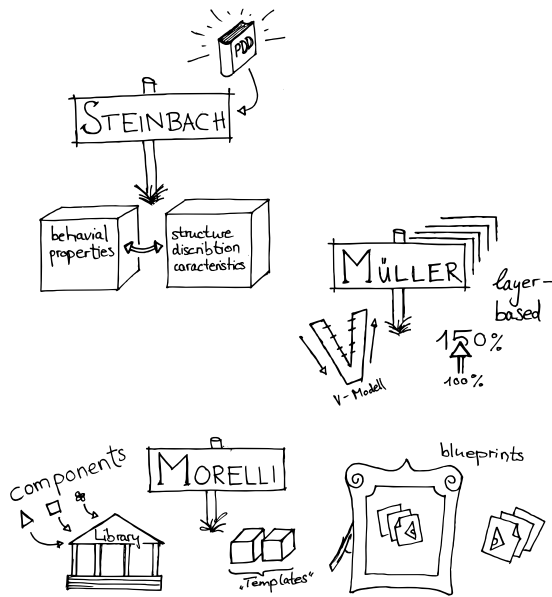 PDD
STEINBACH
behavial
properties
structure
discribtion
caracteristics
MÜLLER
layer-
based
150%
100%
V-Modell
MORELLI
components
Library
"Templates"
blueprints